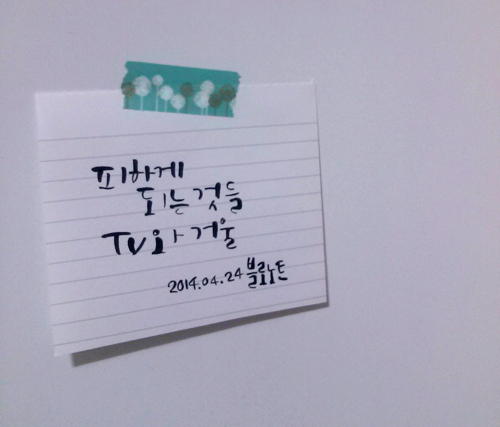 피하게
되는것들
TV와 거울
2014.04.24